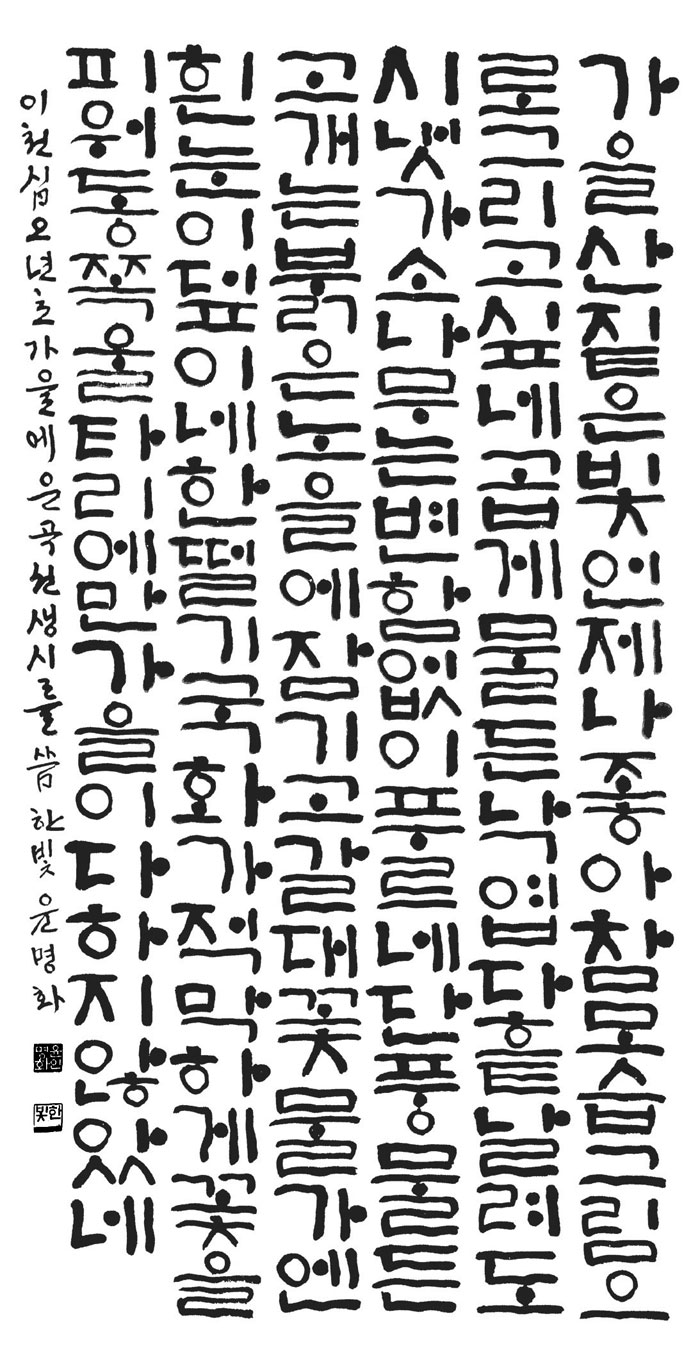 가을산짙은빛언제나좋아참모습그림으
로그리고싶네곱게물든낙엽다흩날려도
시냇가소나무는변함없이푸르네단풍물든
고개는붉은노을에잠기고갈대꽃물가엔
흰눈이덮이네한떨기국화가적막하게꽃을
피워동쪽울타리에만가을이다하지않았네
이천십오년초가을에운곡선생시를 씀 한빛 윤명화
한빛